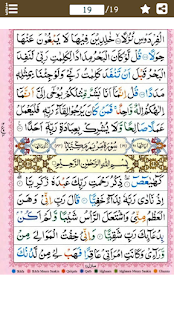 19 /19
الْفِرْدَوْسِ نُزُلًا خٰلِدِيْنَ فِيْهَا لَا يَبْغُوْنَ عَنْهَا
حِوَلًا قُلْ لَّوْ كَانَ الْبَحْرُ مِدَادًا لِّكَلِمٰتِ رَبِّيْ لَنَفِدَ
الْبَحْرُ قَبْلَ اَنْ تَنْفَدَ كَلِمٰتُ رَبِّيْ وَلَوْ جِئْنَا بِمِثْلِهٖ
مَدَدًا قُلْ اِنَّمَآ اَنَا بَشَرٌ مِّثْلُكُمْ يُوْحٰٓى اِلَيَّ اَنَّمَآ
اِلٰهُكُمْ اِلٰهٌ وَّاحِدٌ فَمَنْ كَانَ يَرْجُوْا لِقَآءَ رَبِّهٖ فَلْيَعْمَلْ
عَمَلًا صَالِحًا وَّلَا يُشْرِكْ بِعِبَادَةِ رَبِّهٖٓ اَحَدًا
سُوْرَةُ مَرْيَمَ مَكِّيَّةٌ
بِسْمِ اللّٰهِ الرَّحْمٰنِ الرَّحِيْمِ
كٓهٰيٰعٓصٓ ذِكْرُ رَحْمَتِ رَبِّكَ عَبْدَهٗ زَكَرِيَّا اِذْ
نَادٰى رَبَّهٗ نِدَآءً خَفِيًّا قَالَ رَبِّ اِنِّيْ وَهَنَ
الْعَظْمُ مِنِّيْ وَاشْتَعَلَ الرَّاْسُ شَيْبًا وَّلَمْ اَكُنْ
بِدُعَآئِكَ رَبِّ شَقِيًّا وَاِنِّيْ خِفْتُ الْمَوَالِيَ مِنْ
وَّرَآءِيْ وَكَانَتِ امْرَاَتِيْ عَاقِرًا فَهَبْ لِيْ مِنْ لَّدُنْكَ